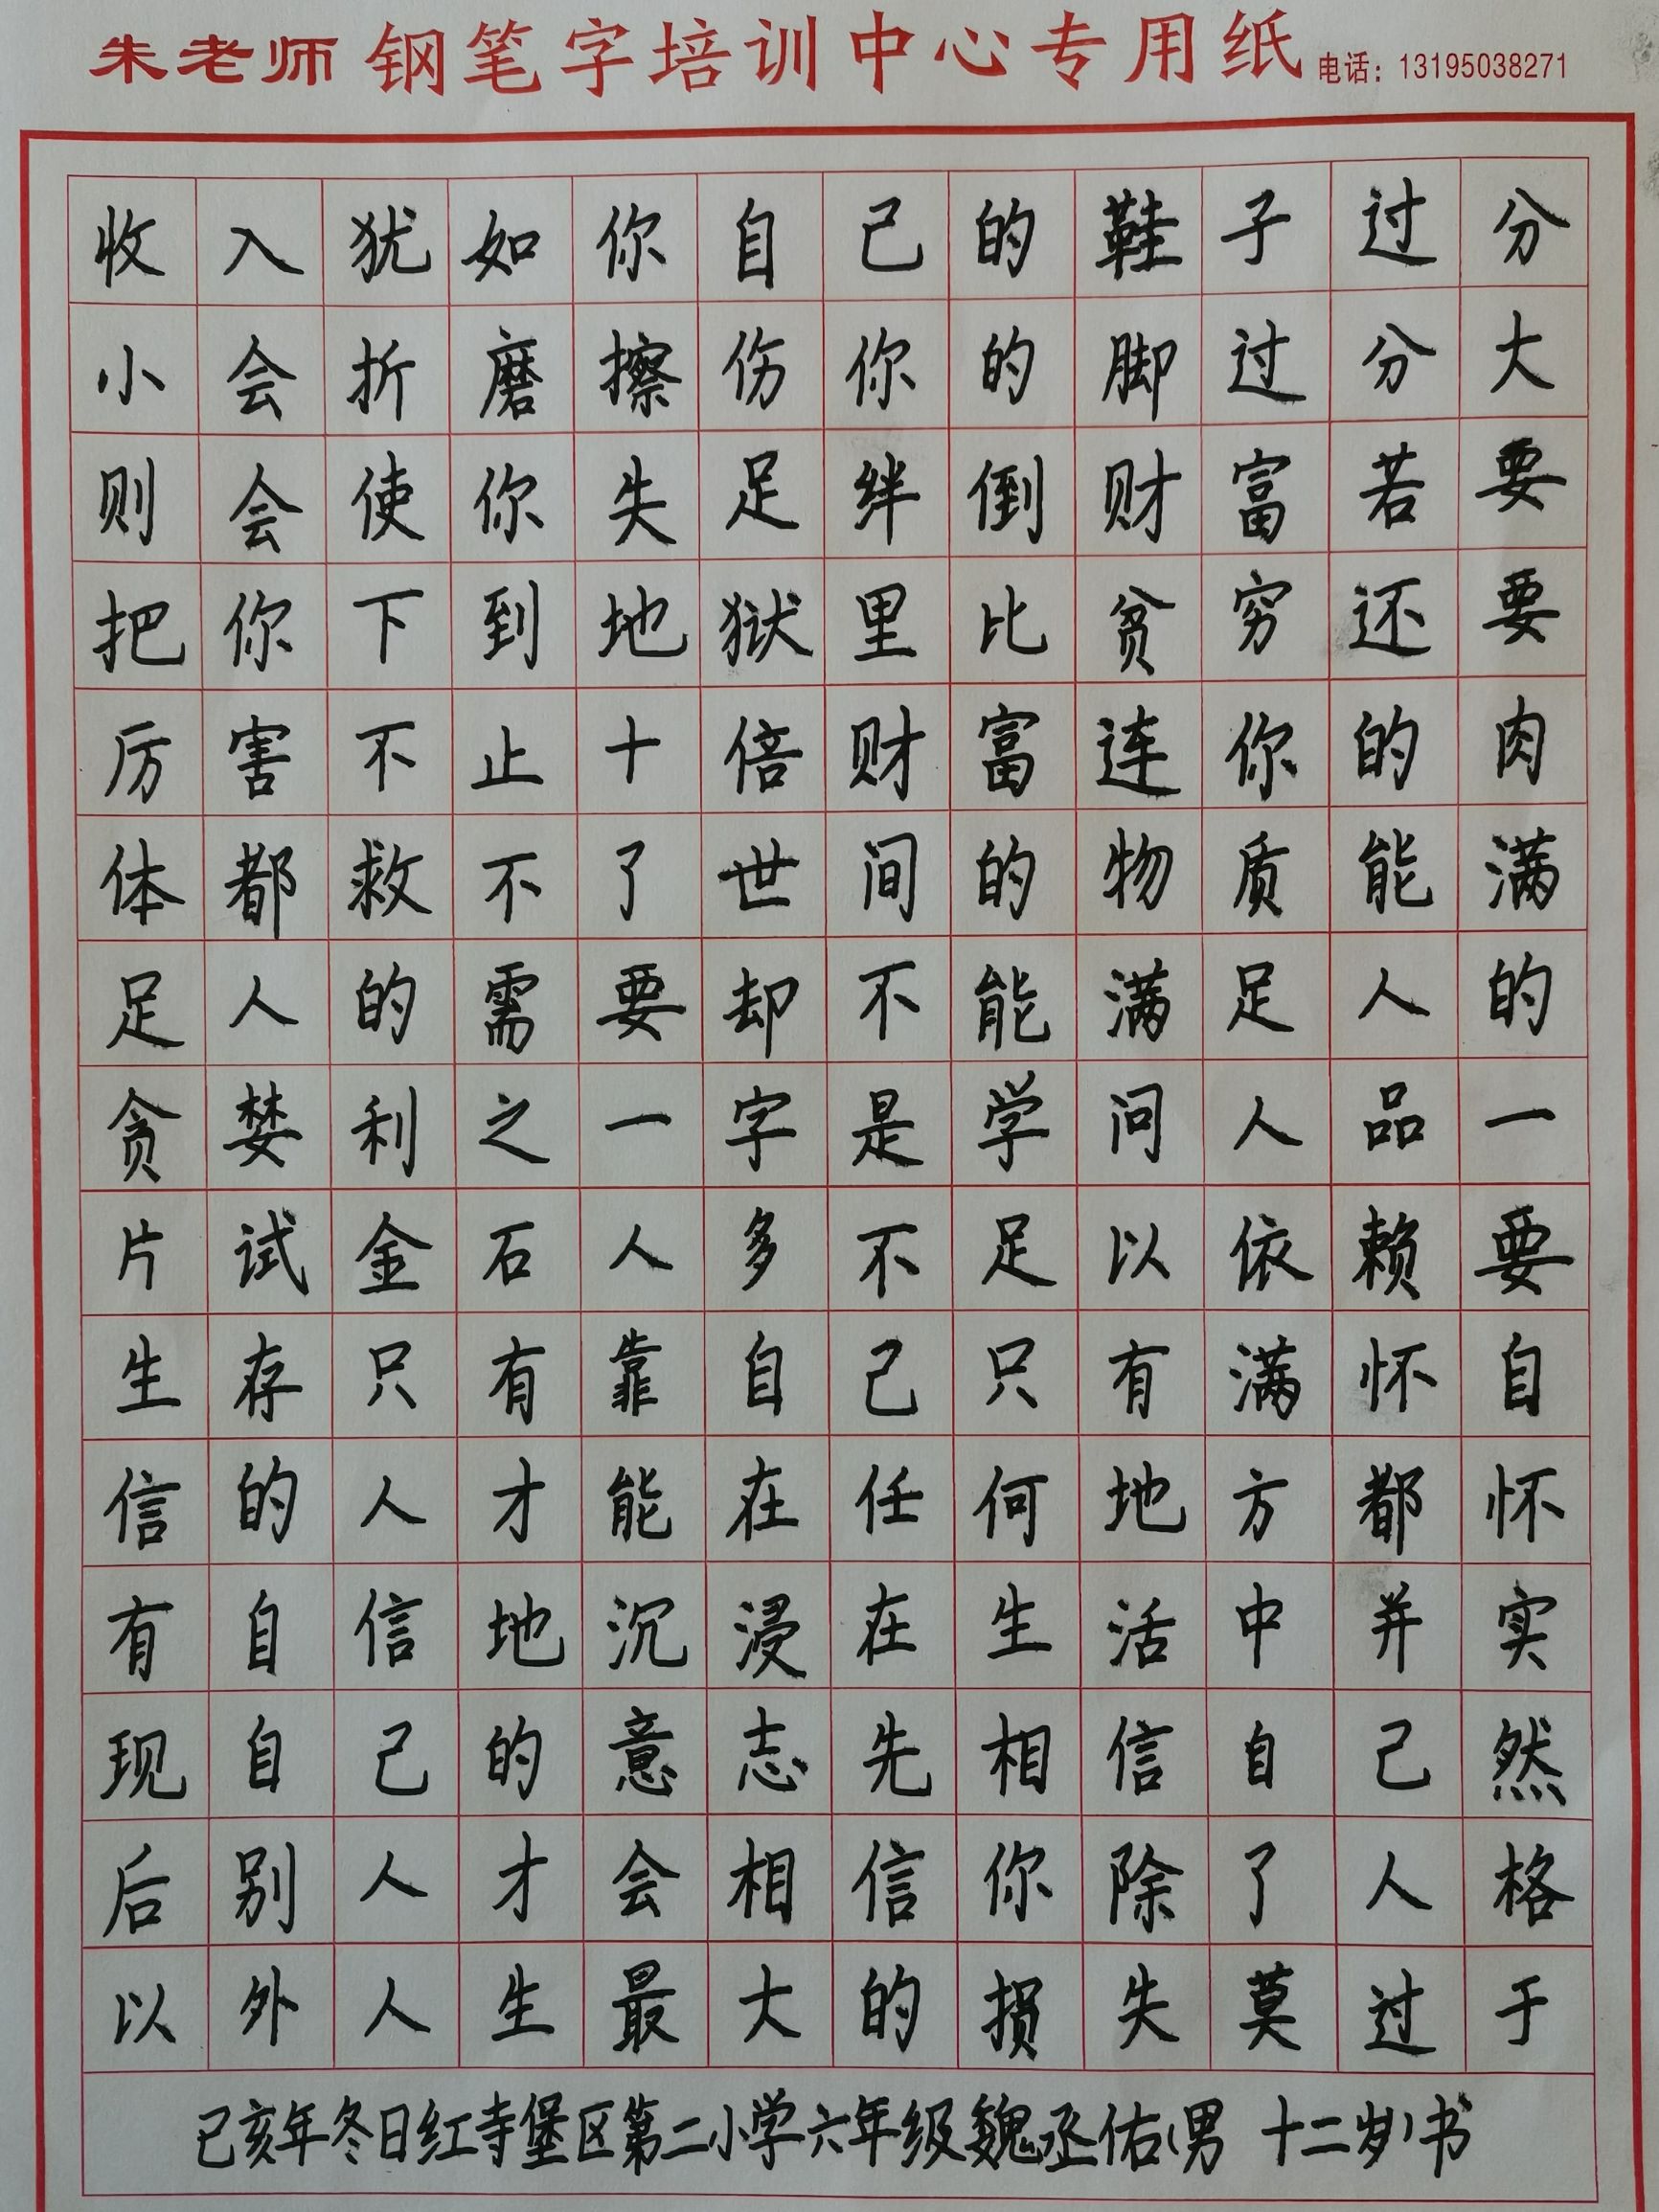 朱老师 钢笔字培训中心专用纸 电话：13195038271
收入犹如你自己的鞋子过分
小会折磨擦伤你的脚过分大
则会使你失足绊倒财富若要
把你下到地狱里比贫穷还要
厉害不止十倍财富连你的肉
体都救不了世间的物质能满
足人的需要却不能满足人的
贪婪利之一字是学问人品一
片试金石人多不足以依赖要
生存只有靠自己只有满怀自
信的人才能在任何地方都怀
有自信地沉浸在生活中并实
现自己的意志先相信自己然
后别人才会相信你除了人格
以外人生最大的损失莫过于
己亥年冬日红寺堡区第二小学六年级魏丞佑(男 十二岁)书